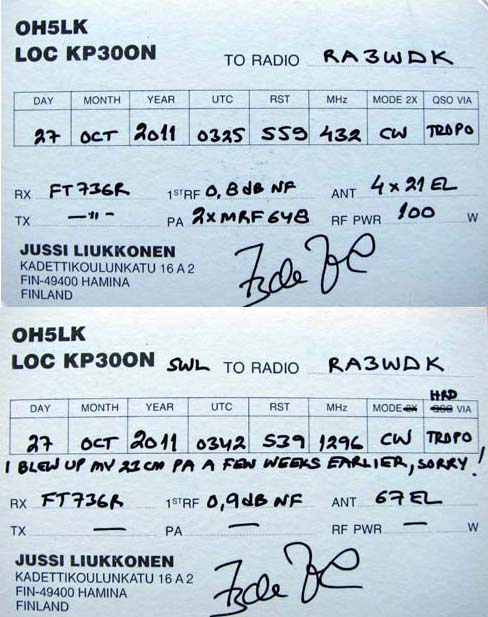 OH5LK
LOC KP30ON TO RADIO RA3WDK
DAY MONTH YEAR UTC RST MHz MODE 2X QSO VIA
27 OCT 2011 0325 559 432 CW TROPO
RX FT736R 1STRF 0,8dB NF ANT 4x21 EL
TX —"— PA 2xMRF648 RF PWR 100 W
JUSSI LIUKKONEN
KADETTIKOULUNKATU 16 A 2
FIN-49400 HAMINA
FINLAND
OH5LK
LOC KP30ON SWL TO RADIO RA3WDK
HRD
DAY MONTH YEAR UTC RST MHz MODE 2X QSO VIA
27 OCT 2011 0342 539 1296 CW TROPO
I BLEW UP MY 23CM PA A FEW WEEKS EARLIER, SORRY!
RX FT736R 1STRF 0,9dB NF ANT 67 EL
TX — PA — RF PWR — W
JUSSI LIUKKONEN
KADETTIKOULUNKATU 16 A 2
FIN-49400 HAMINA
FINLAND